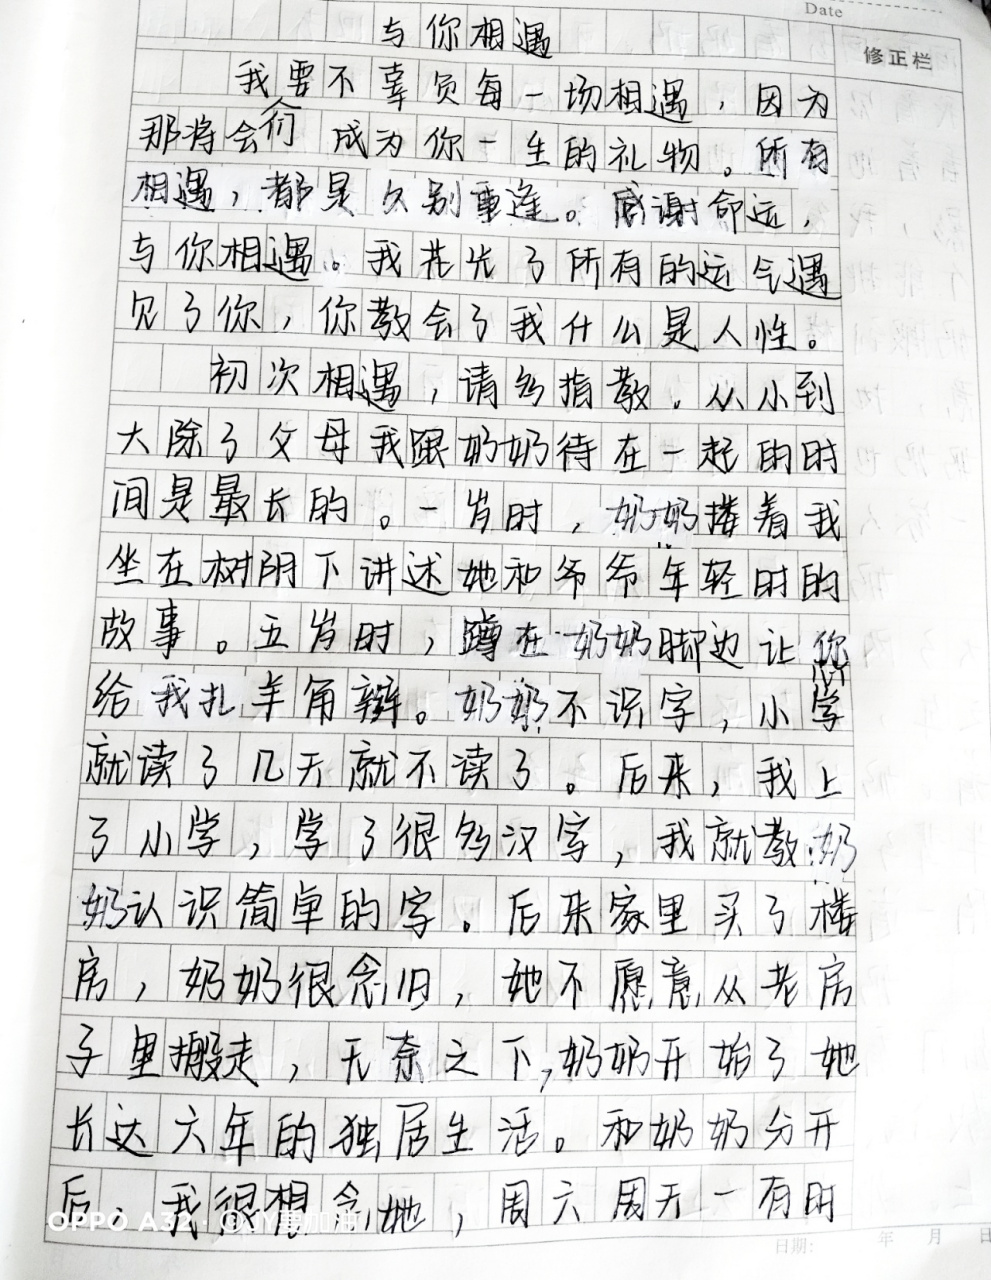 Date
与你相遇
修正栏
我要不辜负每一场相遇，因为
那将会们成为你一生的礼物。所有
相遇，都是久别重逢。感谢命运，
与你相遇。我花光了所有的运气遇
见了你，你教会了我什么是人性。
初次相遇，请多指教。从小到
大除了父母我跟奶奶待在一起的时
间是最长的。一岁时，奶奶搂着我
坐在树阴下讲述她和爷爷年轻时的
故事。五岁时，蹲在奶奶脚边让你
给我扎羊角辫。奶奶不识字，小学
就读了几天就不读了。后来，我上
了小学，学了很多汉字，我就教奶
奶认识简单的字。后来家里买了楼
房，奶奶很念旧，她不愿意从老房
子里搬走，无奈之下，奶奶开始了她
长达六年的独居生活。和奶奶分开
后，我很想念她，周六周天一有时
OPPO A32
日期: 年 月 日